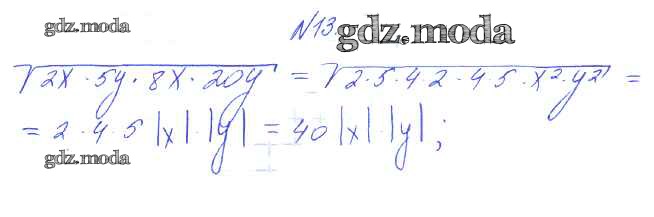 gdz.moda
N13. gdz.moda
√2x · 5y · 8x · 20y = √2 · 5 · 4 2 · 4 5 · x² · y² =
= 2 · 4 · 5 |x| · |y| = 40 |x| · |y| ;
gdz.moda